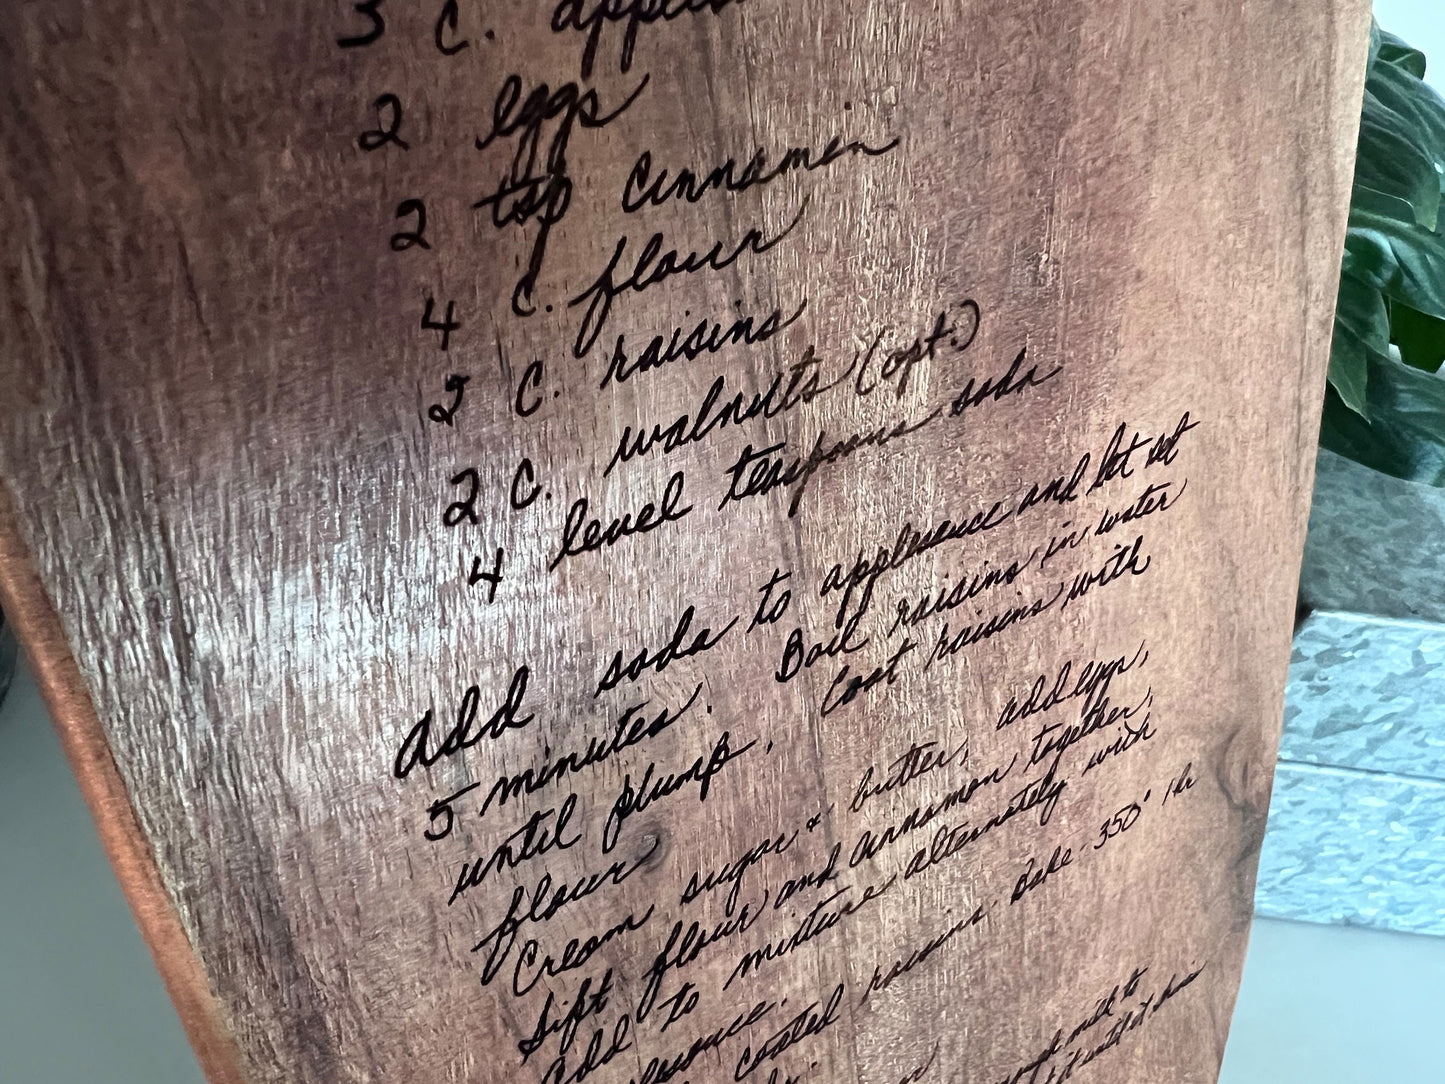 3 C.
2 eggs
2 tsp cinnamon
4 C. flour
2 C. raisins
2 C. walnuts (opt.)
4 level teaspoons soda
add soda to applesauce and let set
5 minutes. Boil raisins in water
until plump. Coat raisins with
flour
Cream sugar & butter, add eggs,
Sift flour and cinnamon together,
add to mixture alternately with
coated raisins. Bake - 350° 1 hr
milk to
it until it